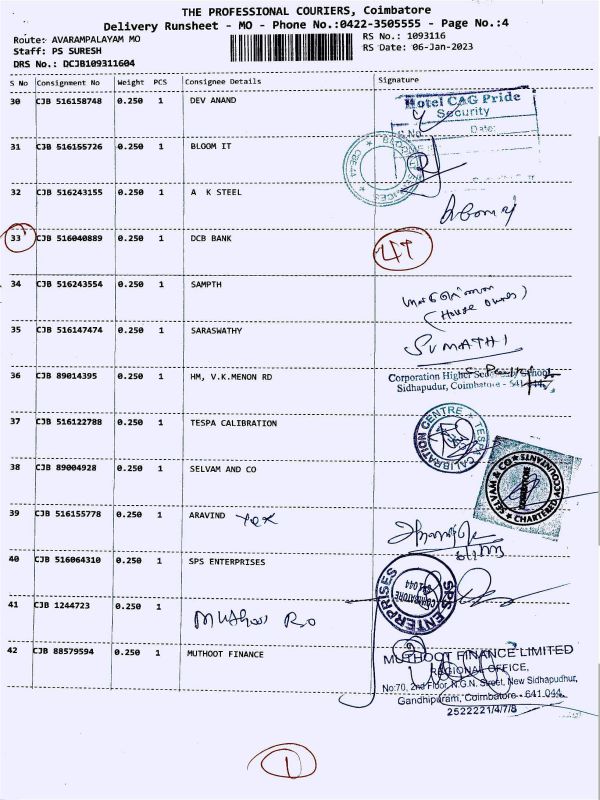 THE PROFESSIONAL COURIERS, Coimbatore
Delivery Runsheet - MO - Phone No.:0422-3505555 - Page No.:4
Route: AVARAMPALAYAM MO
RS No.: 1093116
Staff: PS SURESH
RS Date: 06-Jan-2023
DRS No.: DCJB109311604
S No Consignment No Weight PCS Consignee Details Signature
30 CJB 516158748 0.250 1 DEV ANAND
Hotel CAG Pride
Security
S.No. Date:
31 CJB 516155726 0.250 1 BLOOM IT
32 CJB 516243155 0.250 1 A K STEEL
33 CJB 516040889 0.250 1 DCB BANK
34 CJB 516243554 0.250 1 SAMPTH
(House owner)
35 CJB 516147474 0.250 1 SARASWATHY SUMATHI
36 CJB 89014395 0.250 1 HM, V.K.MENON RD
Corporation Higher Secondary School
Sidhapudur, Coimbatore - 641 044.
37 CJB 516122788 0.250 1 TESPA CALIBRATION
TESPA CALIBRATION CENTRE
38 CJB 89004928 0.250 1 SELVAM AND CO
SELVAM & CO
CHARTERED ACCOUNTANTS
COIMBATORE
39 CJB 516155778 0.250 1 ARAVIND
40 CJB 516064310 0.250 1 SPS ENTERPRISES
SPS ENTERPRISES
COIMBATORE
641 044
41 CJB 1244723 0.250 1 Muthoot RO
42 CJB 88579594 0.250 1 MUTHOOT FINANCE
MUTHOOT FINANCE LIMITED
REGIONAL OFFICE,
No:70, 2nd Floor, N.G.N. Street, New Sidhapudur,
Gandhipuram, Coimbatore - 641 044.
2522221/4/7/8
1